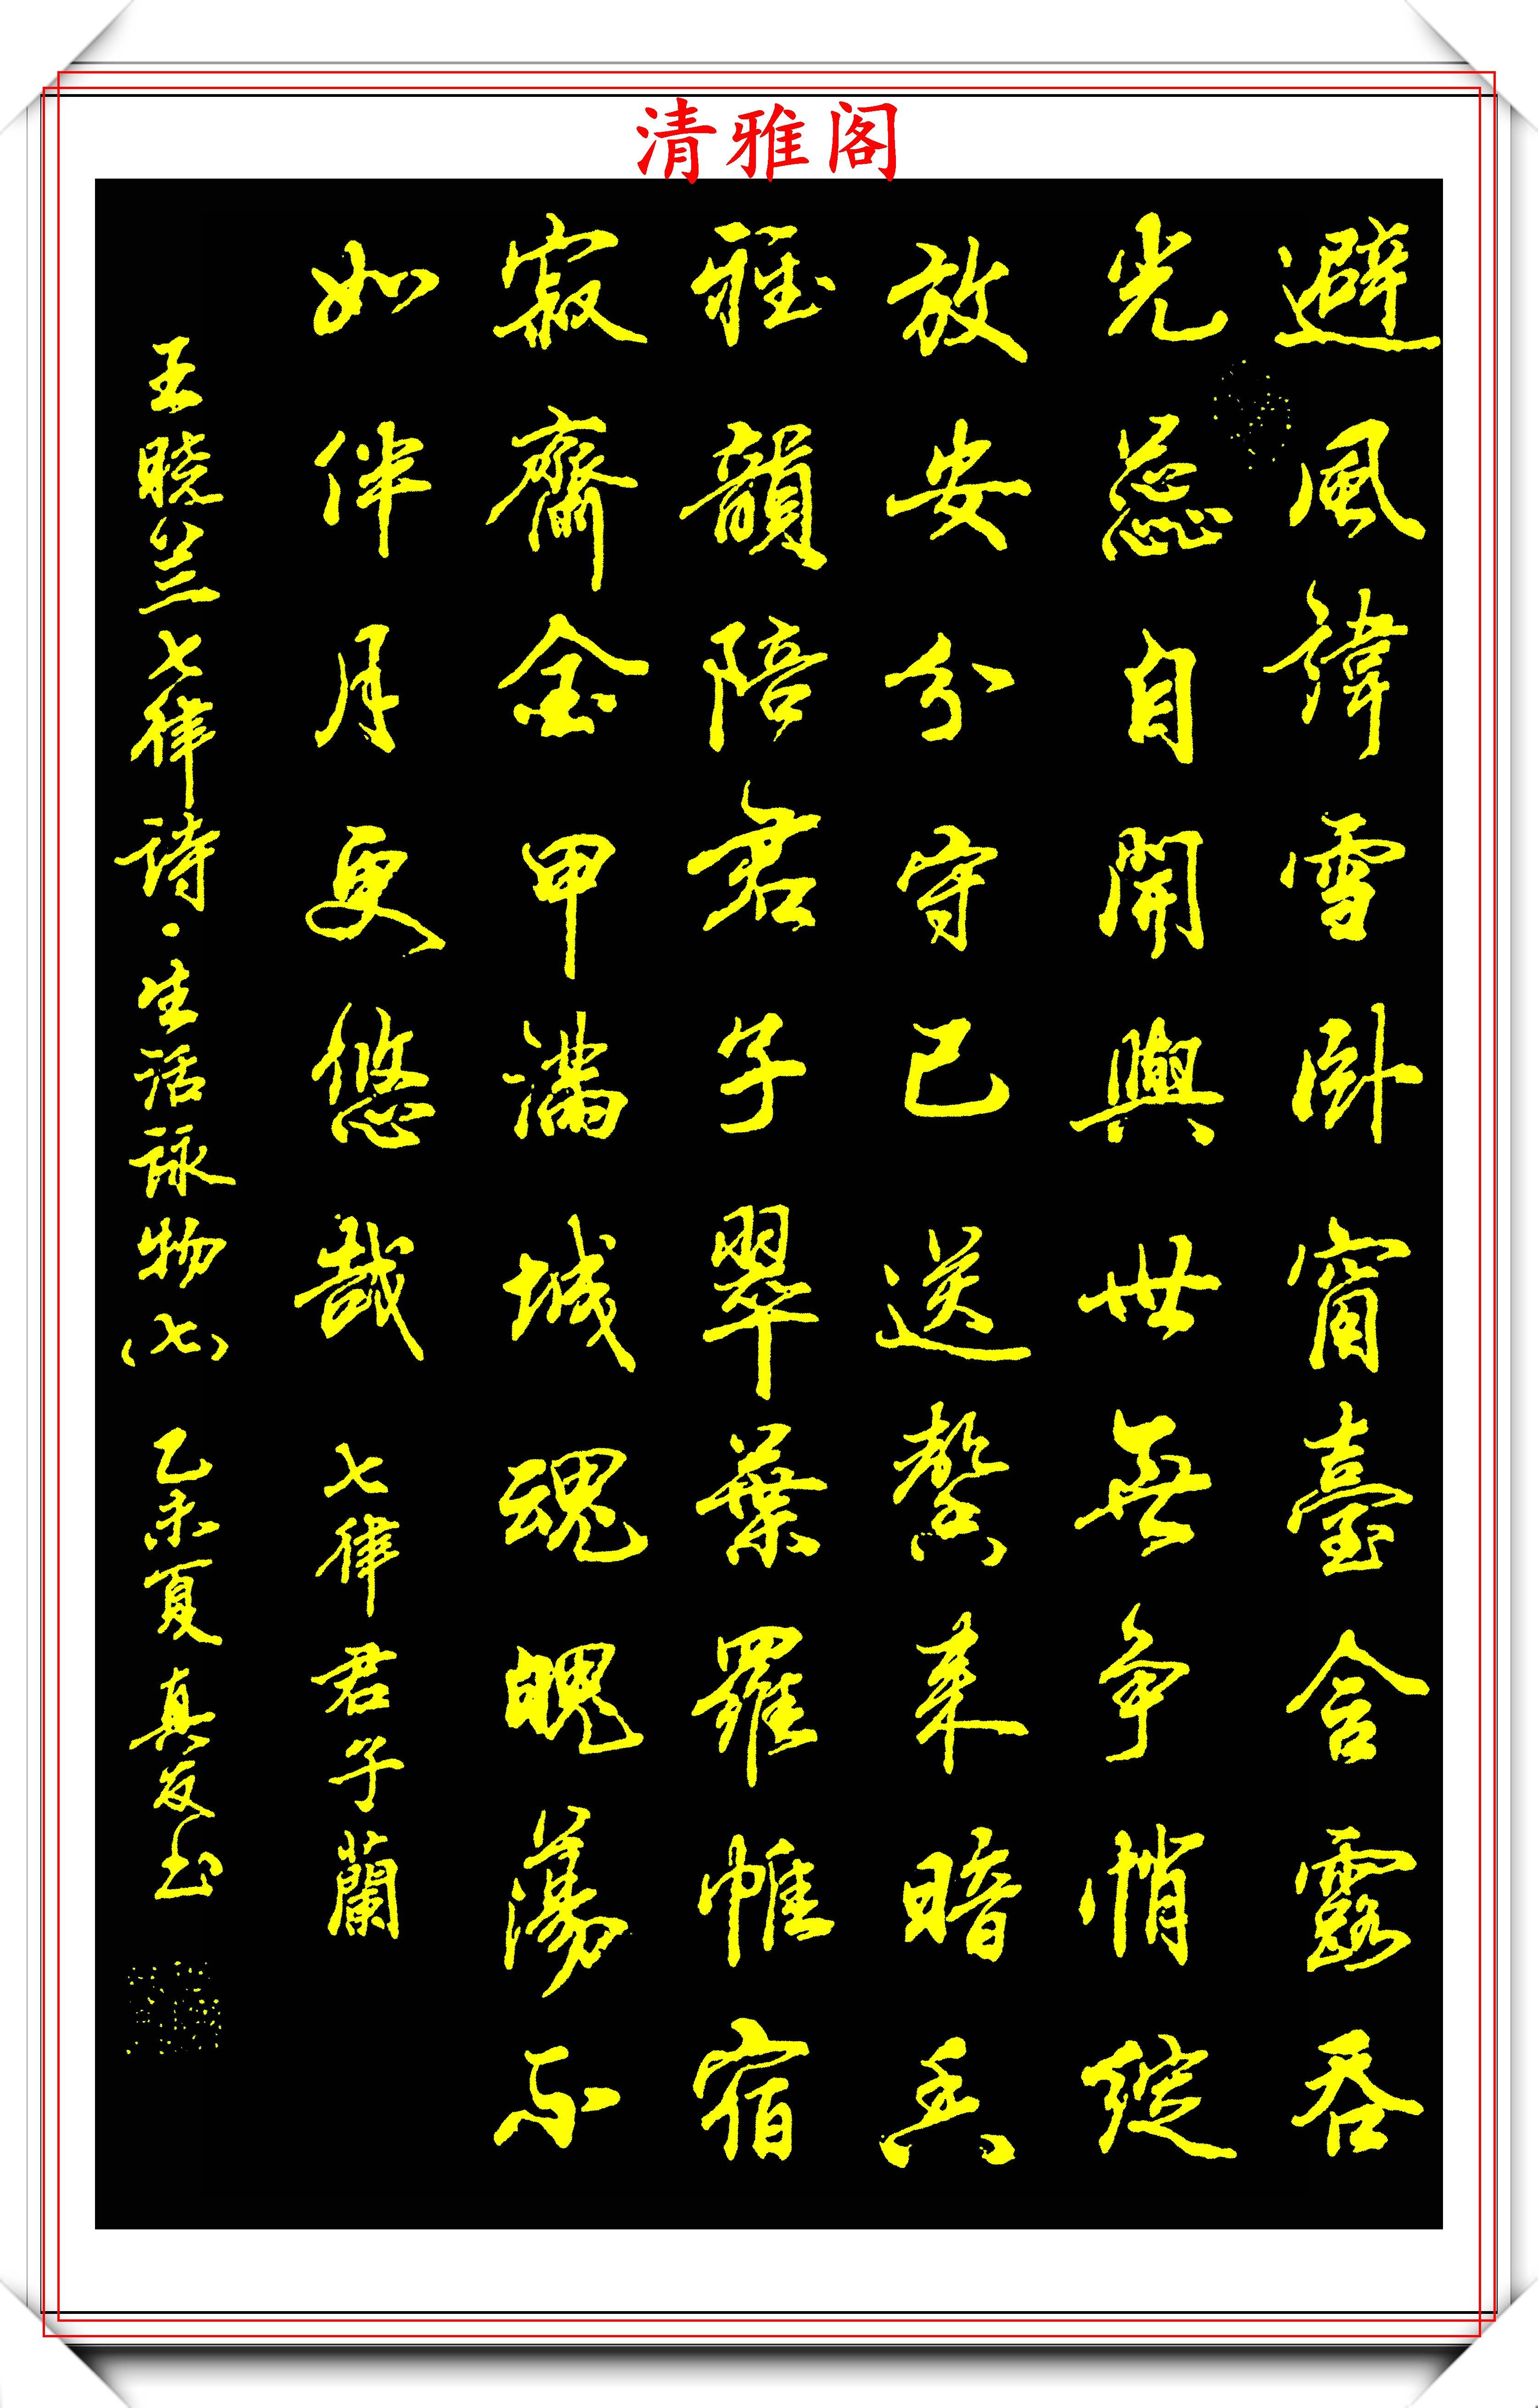 清雅阁
避風諱雪卧窗臺含露吞
光蕊自開與世無争悄綻
放安分守己送馨来暗香
雅韻陪君子翠葉羅帷宿
寂齋金甲滿城魂魄蕩不
如伴月更悠哉 七律君子蘭
王晓兰七律诗·生活詠物(七) 乙未夏真友书